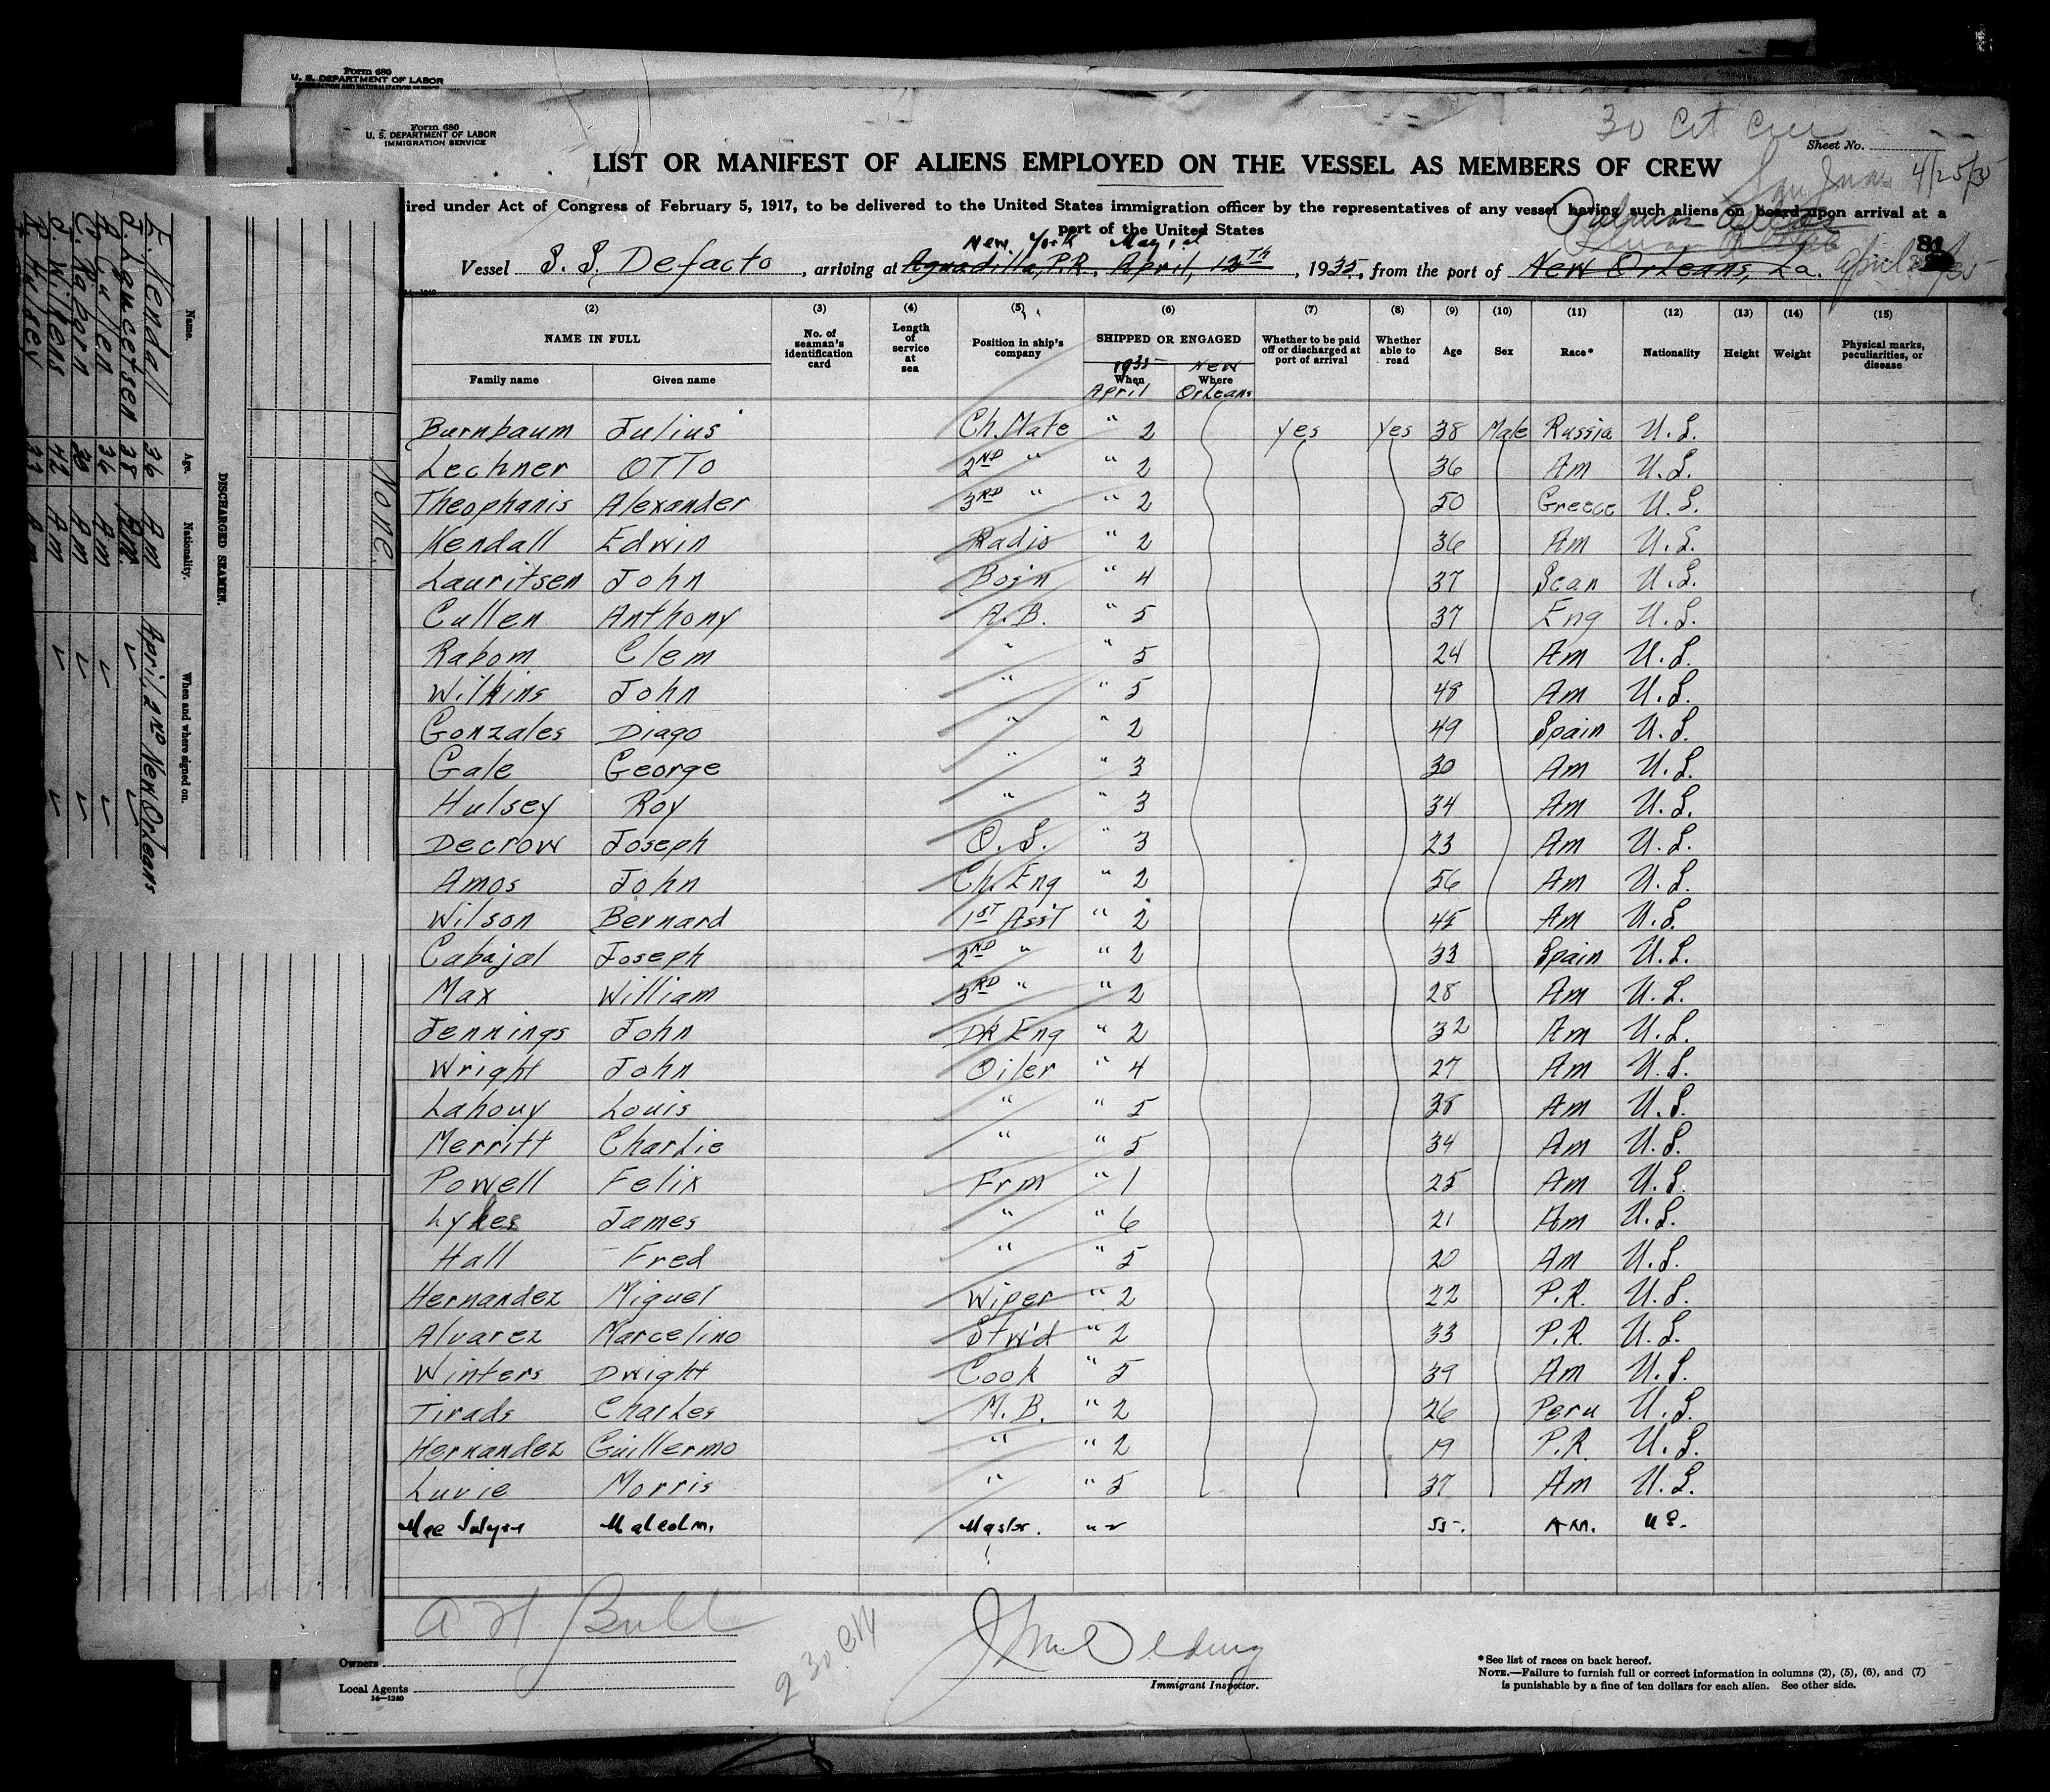 Form 680
U. S. DEPARTMENT OF LABOR
IMMIGRATION AND NATURALIZATION SERVICE
Form 680
U. S. DEPARTMENT OF LABOR
IMMIGRATION SERVICE
30 Cit Crew
Sheet No.
LIST OR MANIFEST OF ALIENS EMPLOYED ON THE VESSEL AS MEMBERS OF CREW
San Juan 4/25/35
ired under Act of Congress of February 5, 1917, to be delivered to the United States immigration officer by the representatives of any vessel having such aliens on board upon arrival at a
port of the United States
New York May 1st
Vessel S. S. Defacto, arriving at Aguadilla, P.R., April, 12th, 1935, from the port of New Orleans, La.
14—1240
(2) (3) (4) (5) (6) (7) (8) (9) (10) (11) (12) (13) (14) (15)
NAME IN FULL
Family name Given name
No. of seaman's identification card
Length of service at sea
Position in ship's company
SHIPPED OR ENGAGED
1935 When April
New Where Orleans
Whether to be paid off or discharged at port of arrival
Whether able to read
Age Sex Race* Nationality Height Weight
Physical marks, peculiarities, or disease
Burnbaum Julius Ch. Mate " 2 Yes Yes 38 Male Russia U.S.
Lechner Otto 2ND " " 2 36 Am U.S.
Theophanis Alexander 3RD " " 2 50 Greece U.S.
Kendall Edwin Radio " 2 36 Am U.S.
Lauritsen John Bos'n " 4 37 Scan U.S.
Cullen Anthony A.B. " 5 37 Eng U.S.
Rabom Clem " " 5 24 Am U.S.
Wilkins John " " 5 48 Am U.S.
Gonzales Diago " " 2 49 Spain U.S.
Gale George " " 3 30 Am U.S.
Hulsey Roy " " 3 34 Am U.S.
Decrow Joseph O.S. " 3 23 Am U.S.
Amos John Ch. Eng " 2 56 Am U.S.
Wilson Bernard 1ST Ass't " 2 45 Am U.S.
Cabajal Joseph 2ND " " 2 33 Spain U.S.
Max William 3RD " " 2 28 Am U.S.
Jennings John Dk Eng " 2 32 Am U.S.
Wright John Oiler " 4 27 Am U.S.
Lahouy Louis " " 5 38 Am U.S.
Merritt Charlie " " 5 34 Am U.S.
Powell Felix Frm " 1 25 Am U.S.
Lykes James " " 6 21 Am U.S.
Hall Fred " " 5 20 Am U.S.
Hernandez Miguel Wiper " 2 22 P.R. U.S.
Alvarez Marcelino Stw'd " 2 33 P.R. U.S.
Winters Dwight Cook " 5 39 Am U.S.
Tirads Charles M.B. " 2 26 Peru U.S.
Hernandez Guillermo " " 2 19 P.R. U.S.
Luvie Morris " " 5 37 Am U.S.
Mac Malcolm. Master. " 2 55 Am. U.S.
A H Bull
230 CW
Owners
Local Agents
14—1240
Immigrant Inspector.
*See list of races on back hereof.
NOTE.—Failure to furnish full or correct information in columns (2), (5), (6), and (7)
is punishable by a fine of ten dollars for each alien. See other side.
None.
DISCHARGED SEAMEN.
Name. Age. Nationality. When and where signed on.
E. Kendall 36 Am April 2ND New Orleans
J. Lauretsen 38 Am.
A. Cullen 36 Am
C. Raborn Am
J. Wilkens 42 Am
R. Hulsey 33 Am